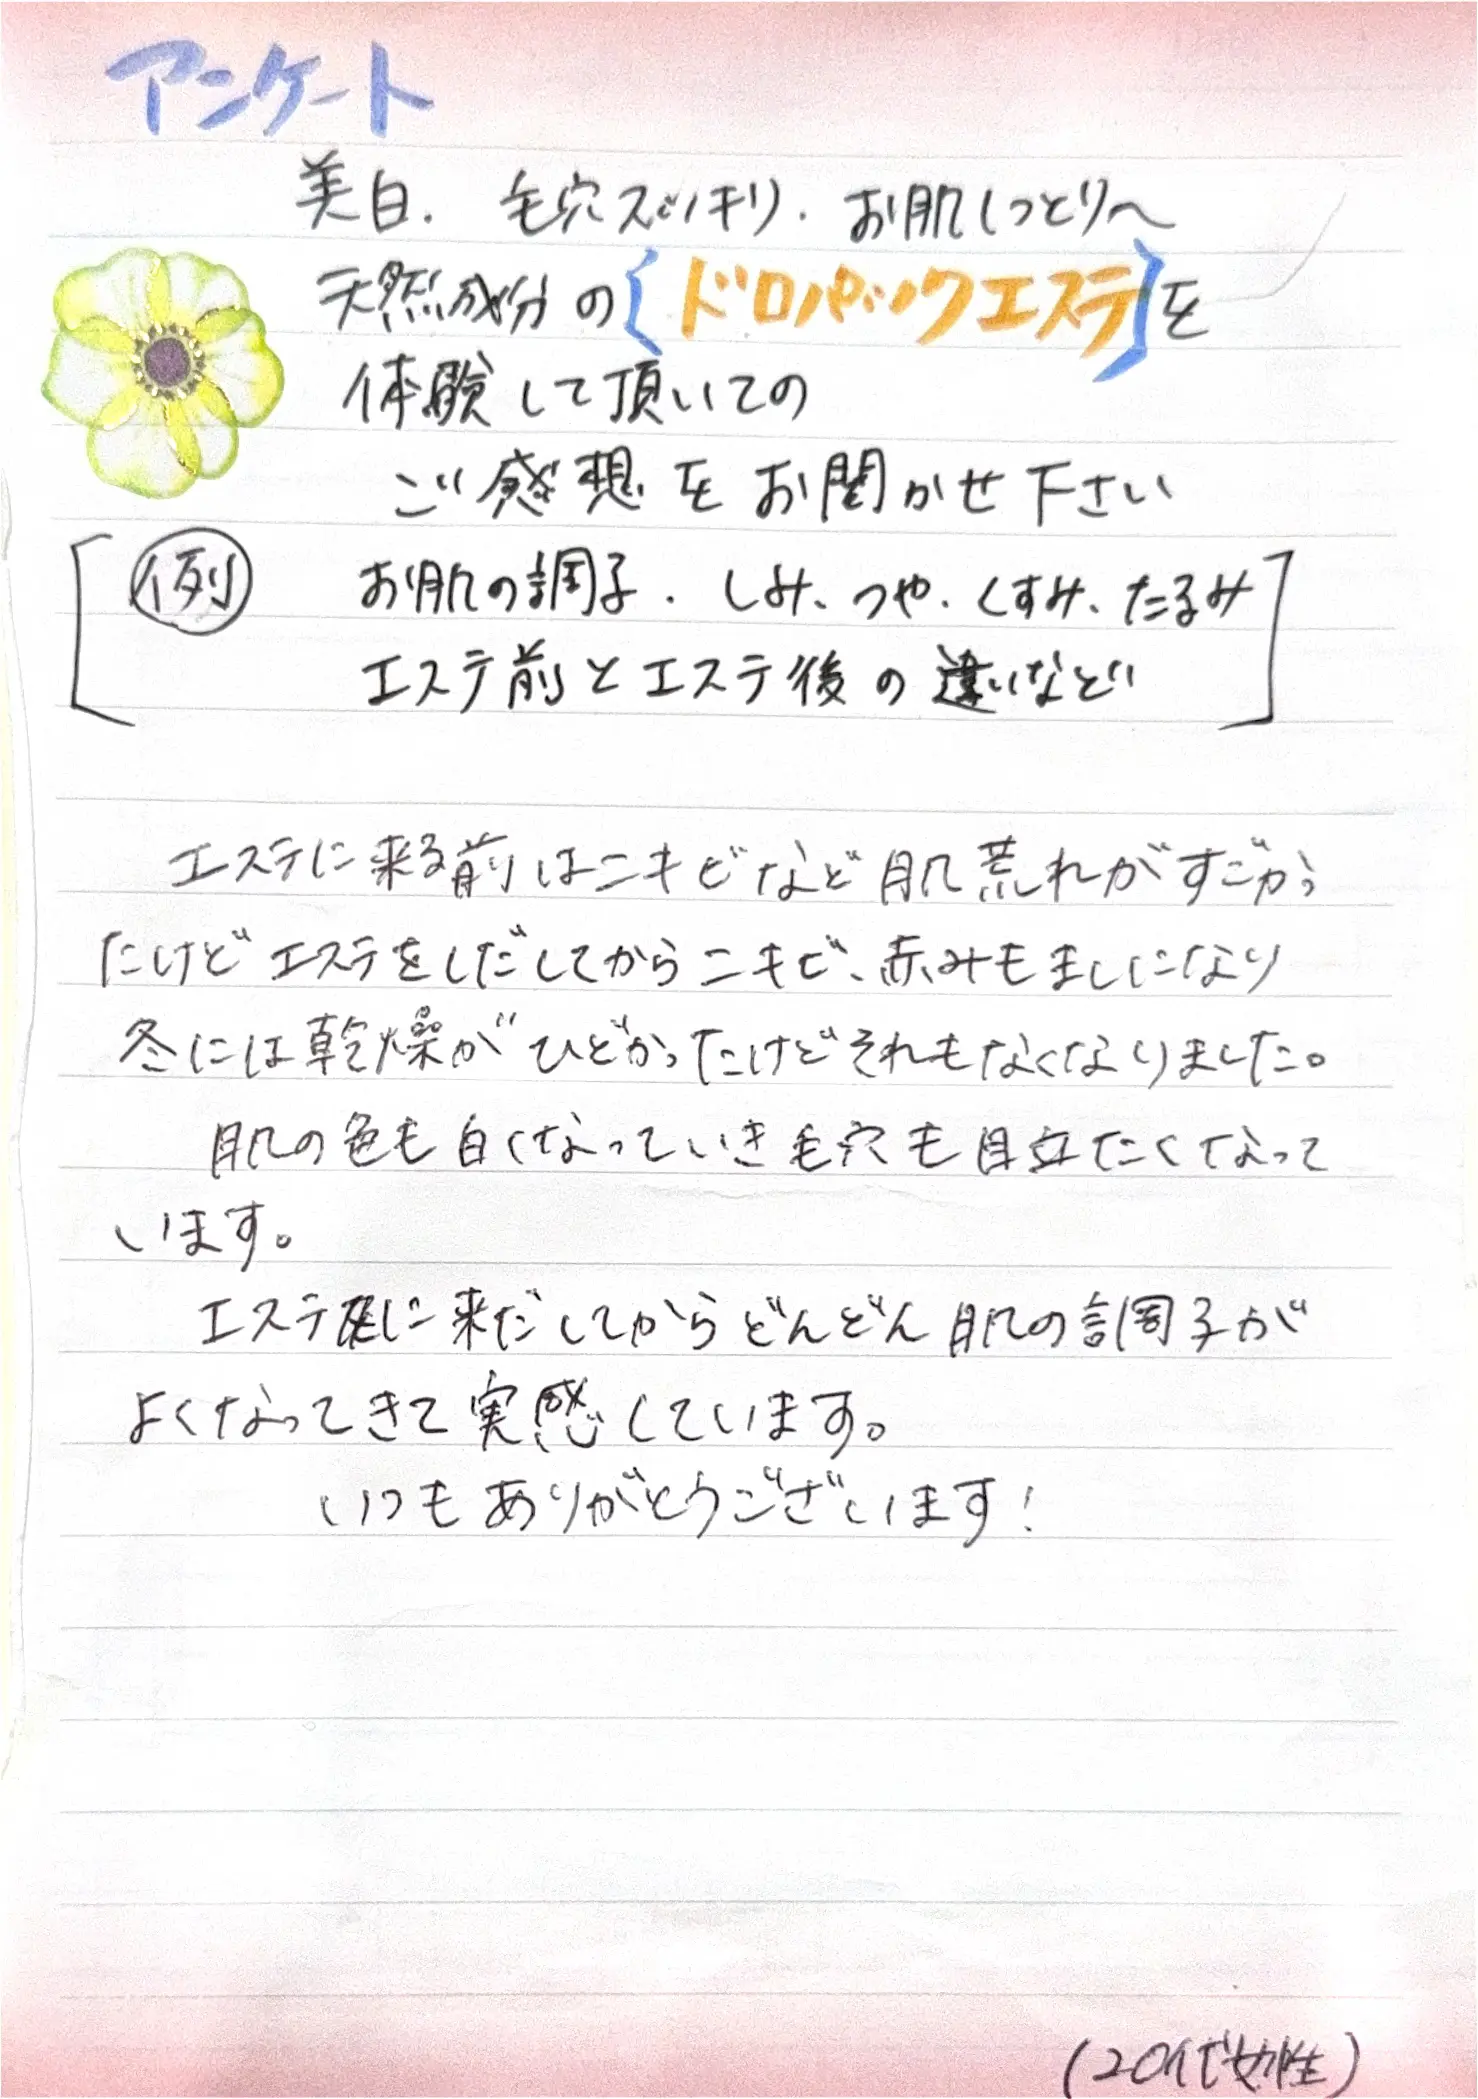 アンケート
美白. 毛穴スッキリ. お肌しっとりへ
天然成分の{ドロパックエステ}を
体験して頂いての
ご感想をお聞かせ下さい
[例 お肌の調子. しみ、つや. くすみ、たるみ
エステ前とエステ後の違いなど]
エステに来る前はニキビなど肌荒れがすごかっ
たけどエステをしだしてからニキビ、赤みもましになり
冬には乾燥がひどかったけどそれもなくなりました。
肌の色も白くなっていき毛穴も目立たくなって
います。
エステに来だしてからどんどん肌の調子が
よくなってきて実感しています。
いつもありがとうございます!
(20代女性)